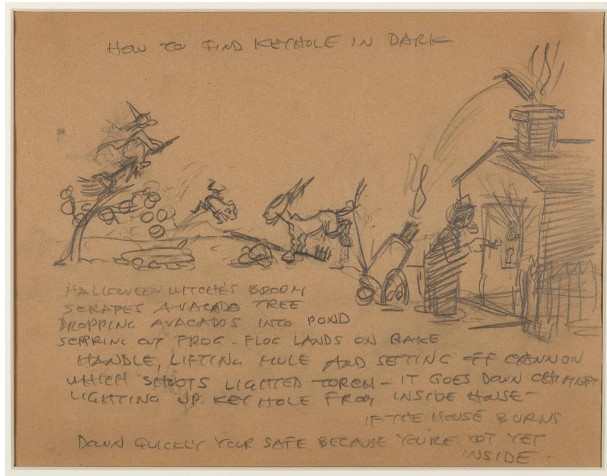 HOW TO FIND KEYHOLE IN DARK
HALLOWEEN WITCH'S BROOM
SCRAPES AVACADO TREE
DROPPING AVACADOS INTO POND
SCARING OUT FROG - FLOG LANDS ON RAKE
HANDLE, LIFTING MULE AND SETTING OFF CANNON
WHICH SHOOTS LIGHTED TORCH - IT GOES DOWN CHIMNEY
LIGHTING UP KEYHOLE FROM INSIDE HOUSE -
IF THE HOUSE BURNS
DOWN QUICKLY YOUR SAFE BECAUSE YOU'RE NOT YET
INSIDE.